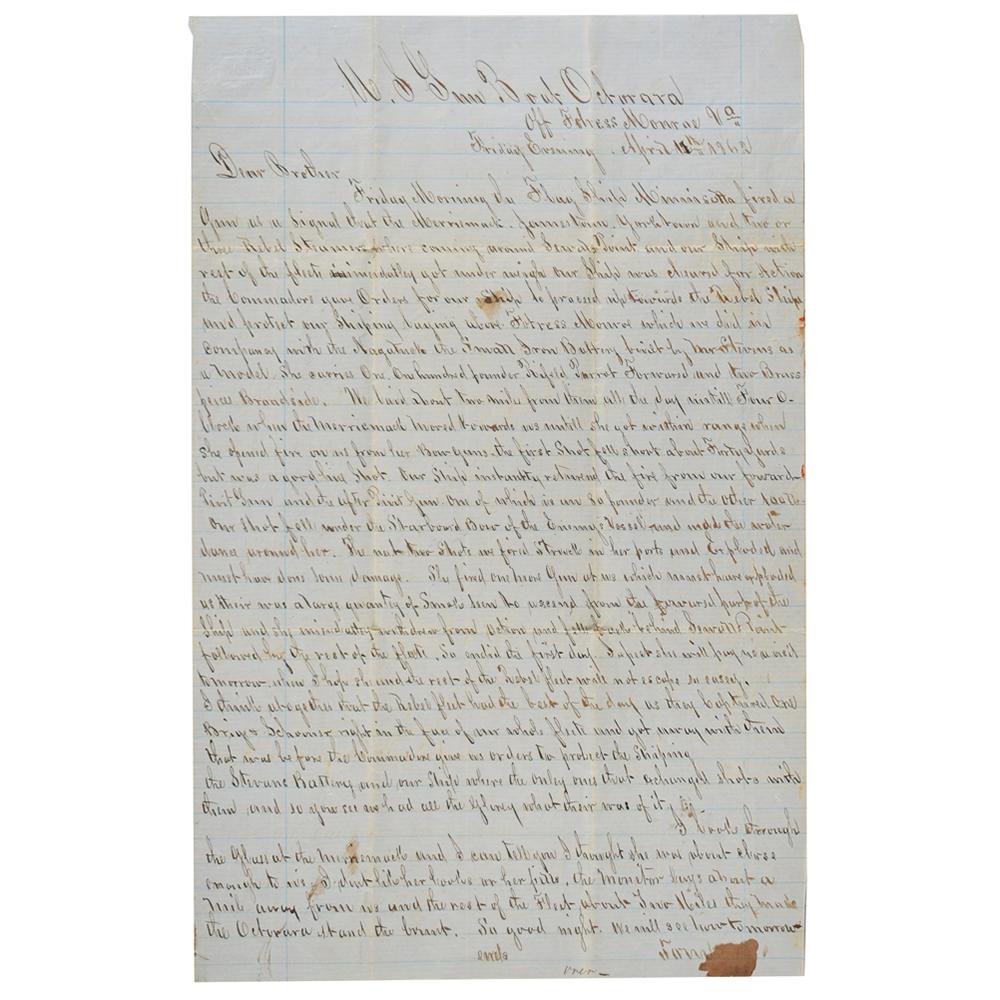 U. S Gun Boat Octorara
Off Fotress Monroe Va
Friday Evening. April 11th 1862
Dear Brother
Friday Morning the Flag Ship Minnisotta fired a
Gun as a Signal that the Merriemack Jamestown Yorktown and two or
three Rebel Steamers where coming around Sewals Point and our Ship with
rest of the fleete immidatley got under weigh our Ship was cleared for Action
the Commadore gave Orders for our Ship to proceed up towards the Rebel Ships
and protect our Shiping laying above Fotress Monroe which we did in
company with the Nagatuck the Small Iron Battery built by Mr Stevens as
a Model. She carries One. One hundred pounder Rifeld Parrot Forward and two Brass
peice Broadside. We laid about two mile from them all the day untill Four O-
Clock when the Merriemack Moved towards us untill she got within range when
she opened fire on us from her Bow Guns. the first Shot fell short about Forty Yards
but was a good line Shot. Our Ship instantly returned the fire from our forward
Pivit Gun and the After Pivit Gun. One of which is an 80 pounder and the other 100 Do-
Our Shot fell under the Starboard Bow of the Enemys Vessel and made the water
dance around her. The next two Shots we fired Struck in her ports and Exploded and
must have done some damage. She fired one more Gun at us which must have exploded
as their was a large quantity of Smok seen to ascend from the forward part of the
Ship and she after withdrew from Action and fell back behind Sewells Point
followed by the rest of the fleete. So endid the first day. I expect she will pay us a visit
tomorrow. when I hope she and the rest of the Rebel fleet will not escape so easey.
I think altogether that the Rebel fleet had the best of the day as they Captured One
Brig & Schooner right in the face of our whole fleete and got away with them
that was before the Commadore give us orders to protect the Shiping
the Stevans Battery and our Ship where the only one that exchanged shots with
them and so you see we had all the Glorey what their was of it
I look through
the Glass at the Merriemack and I can tell you I thought she was about close
enough to us. I dont like her looks or her pills. the Monitor lays about a
Mile away from us and the rest of the Fleet about Two Miles they made
the Octorara stand the brunt. So good night. We will see how tomorrow
ends
over-